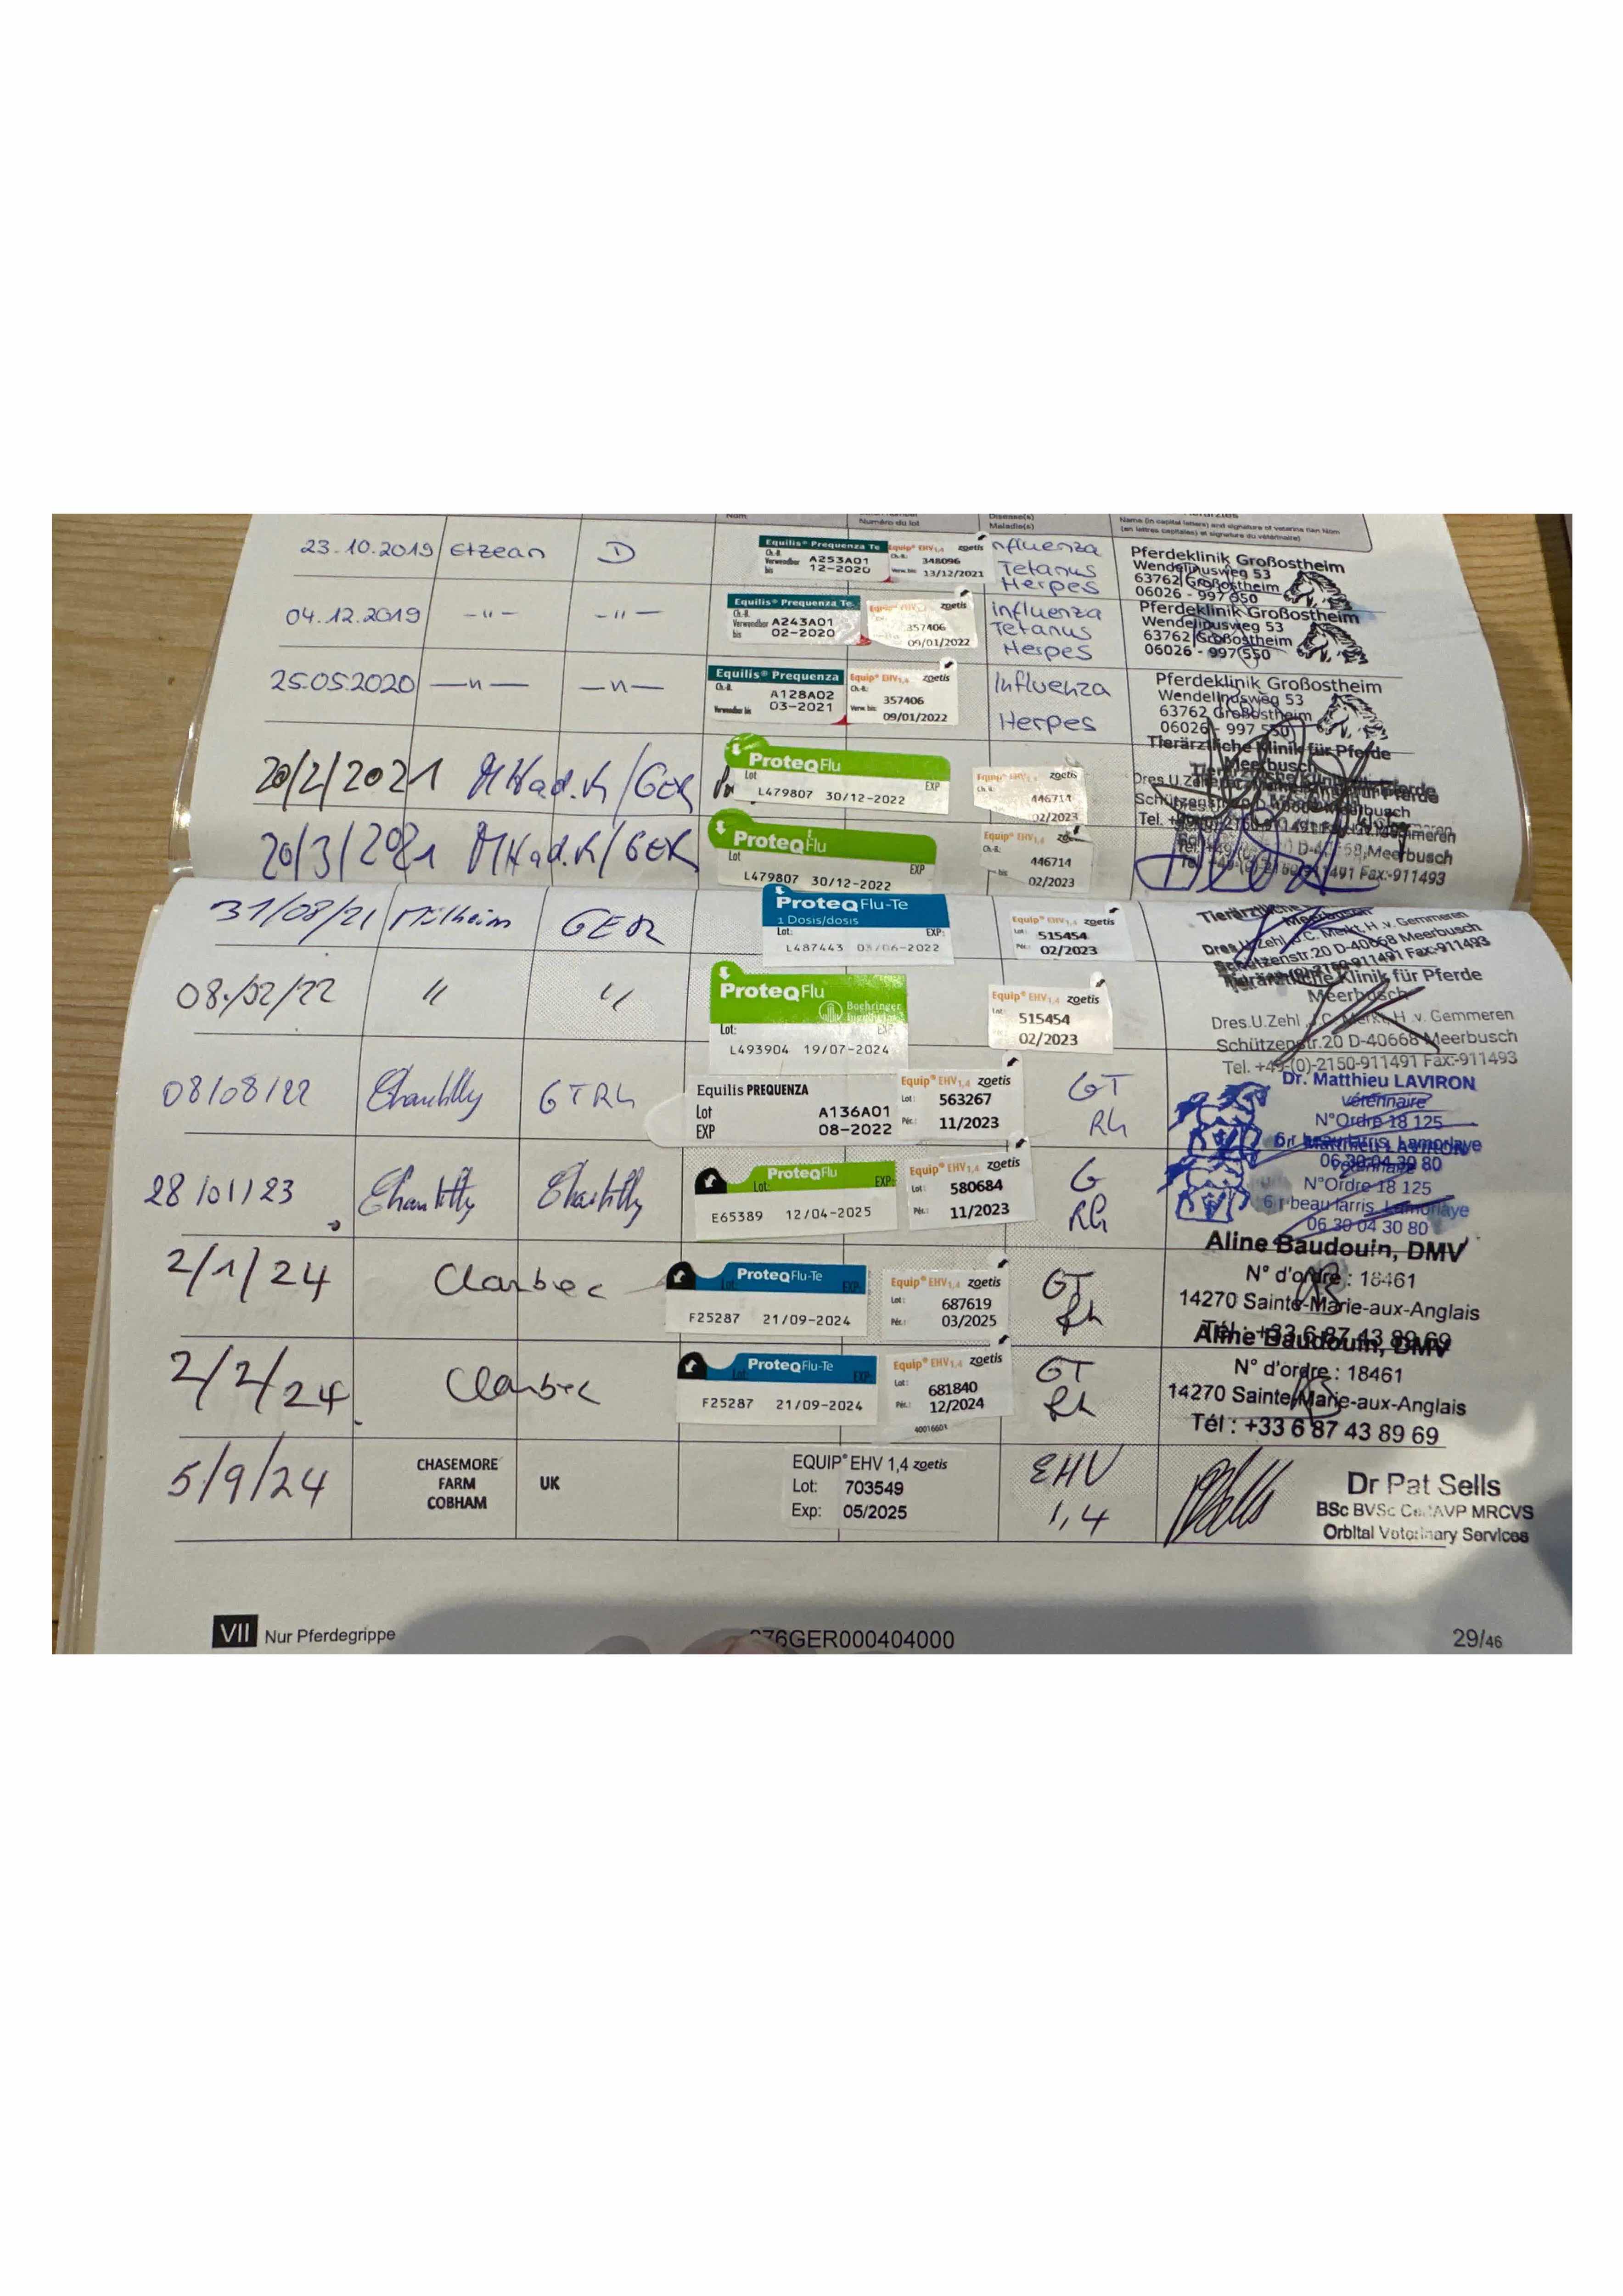 Nom
Numéro du lot
Disease(s)
Maladie(s)
Name (in capital letters) and signature of veterinarian
(en lettres capitales) et signature du vétérinaire)
23.10.2019 Etzean D
Equilis® Prequenza Te
Ch.-B. A253A01
Verwendbar bis 12-2020
Equip® EHV1,4 zoetis
Ch.-B.: 348096
Verw. bis: 13/12/2021
Influenza
Tetanus
Herpes
Pferdeklinik Großostheim
Wendelinusweg 53
63762 Großostheim
06026 - 997 550
04.12.2019 -"- -"-
Equilis® Prequenza Te
Ch.-B. A243A01
Verwendbar bis 02-2020
zoetis
357406
09/01/2022
Influenza
Tetanus
Herpes
Pferdeklinik Großostheim
Wendelinusweg 53
63762 Großostheim
06026 - 997 550
25.05.2020 —"— —"—
Equilis® Prequenza
Ch.-B. A128A02
Verwendbar bis 03-2021
Equip® EHV1,4 zoetis
Ch.-B.: 357406
Verw. bis: 09/01/2022
Influenza
Herpes
Pferdeklinik Großostheim
Wendelinusweg 53
63762 Großostheim
06026 - 997 550
20/2/2021 /GER
ProteqFlu
Lot EXP
L479807 30/12-2022
Equip® EHV1,4 zoetis
Ch.-B.: 446714
02/2023
Tierärztliche Klinik für Pferde
Meerbusch
20/3/2021 /GER
ProteqFlu
Lot EXP
L479807 30/12-2022
Equip® EHV1,4
Ch.-B.: 446714
bis 02/2023
D-40668 Meerbusch
31/08/21 Mülheim GER
ProteqFlu-Te
1 Dosis/dosis
Lot: EXP:
L487443 03/06-2022
Equip® EHV1,4 zoetis
Lot: 515454
Pér.: 02/2023
Tierärztliche
Meerbusch
Dres.U.Zehl, J.C. Merkt, H.v. Gemmeren
Schützenstr.20 D-40668 Meerbusch
08/02/22 " "
ProteqFlu
Boehringer Ingelheim
Lot: EXP:
L493904 19/07-2024
Equip® EHV1,4 zoetis
Lot: 515454
02/2023
Tierärztliche Klinik für Pferde
Meerbusch
Dres.U.Zehl, J.C. Merkt, H.v. Gemmeren
Schützenstr.20 D-40668 Meerbusch
Tel. +49-(0)-2150-911491 Fax:-911493
08/08/22 Chantilly GTRh
Equilis PREQUENZA
Lot A136A01
EXP 08-2022
Equip® EHV1,4 zoetis
Lot: 563267
Pér.: 11/2023
GT
Rh
Dr. Matthieu LAVIRON
vétérinaire
N°Ordre 18 125
6 r beau larris, Lamorlaye
06 30 04 30 80
28/01/23 Chantilly Chantilly
ProteqFlu
Lot: EXP:
E65389 12/04-2025
Equip® EHV1,4 zoetis
Lot: 580684
Pér.: 11/2023
G
Rh
vétérinaire
N°Ordre 18 125
6 r beau larris, Lamorlaye
06 30 04 30 80
2/1/24 Clarbec
ProteqFlu-Te
Lot: EXP:
F25287 21/09-2024
Equip® EHV1,4 zoetis
Lot: 687619
Pér.: 03/2025
GT
Rh
Aline Baudouin, DMV
N° d'ordre : 18461
14270 Sainte-Marie-aux-Anglais
Tél : +33 6 87 43 89 69
2/2/24 Clarbec
ProteqFlu-Te
Lot: EXP:
F25287 21/09-2024
Equip® EHV1,4 zoetis
Lot: 681840
Pér.: 12/2024
40016601
GT
Rh
Aline Baudouin, DMV
N° d'ordre : 18461
14270 Sainte-Marie-aux-Anglais
Tél : +33 6 87 43 89 69
5/9/24
CHASEMORE
FARM
COBHAM
UK
EQUIP® EHV 1,4 zoetis
Lot: 703549
Exp: 05/2025
EHV
1,4
Dr Pat Sells
BSc BVSc CertAVP MRCVS
Orbital Veterinary Services
VII Nur Pferdegrippe
276GER000404000
29/46